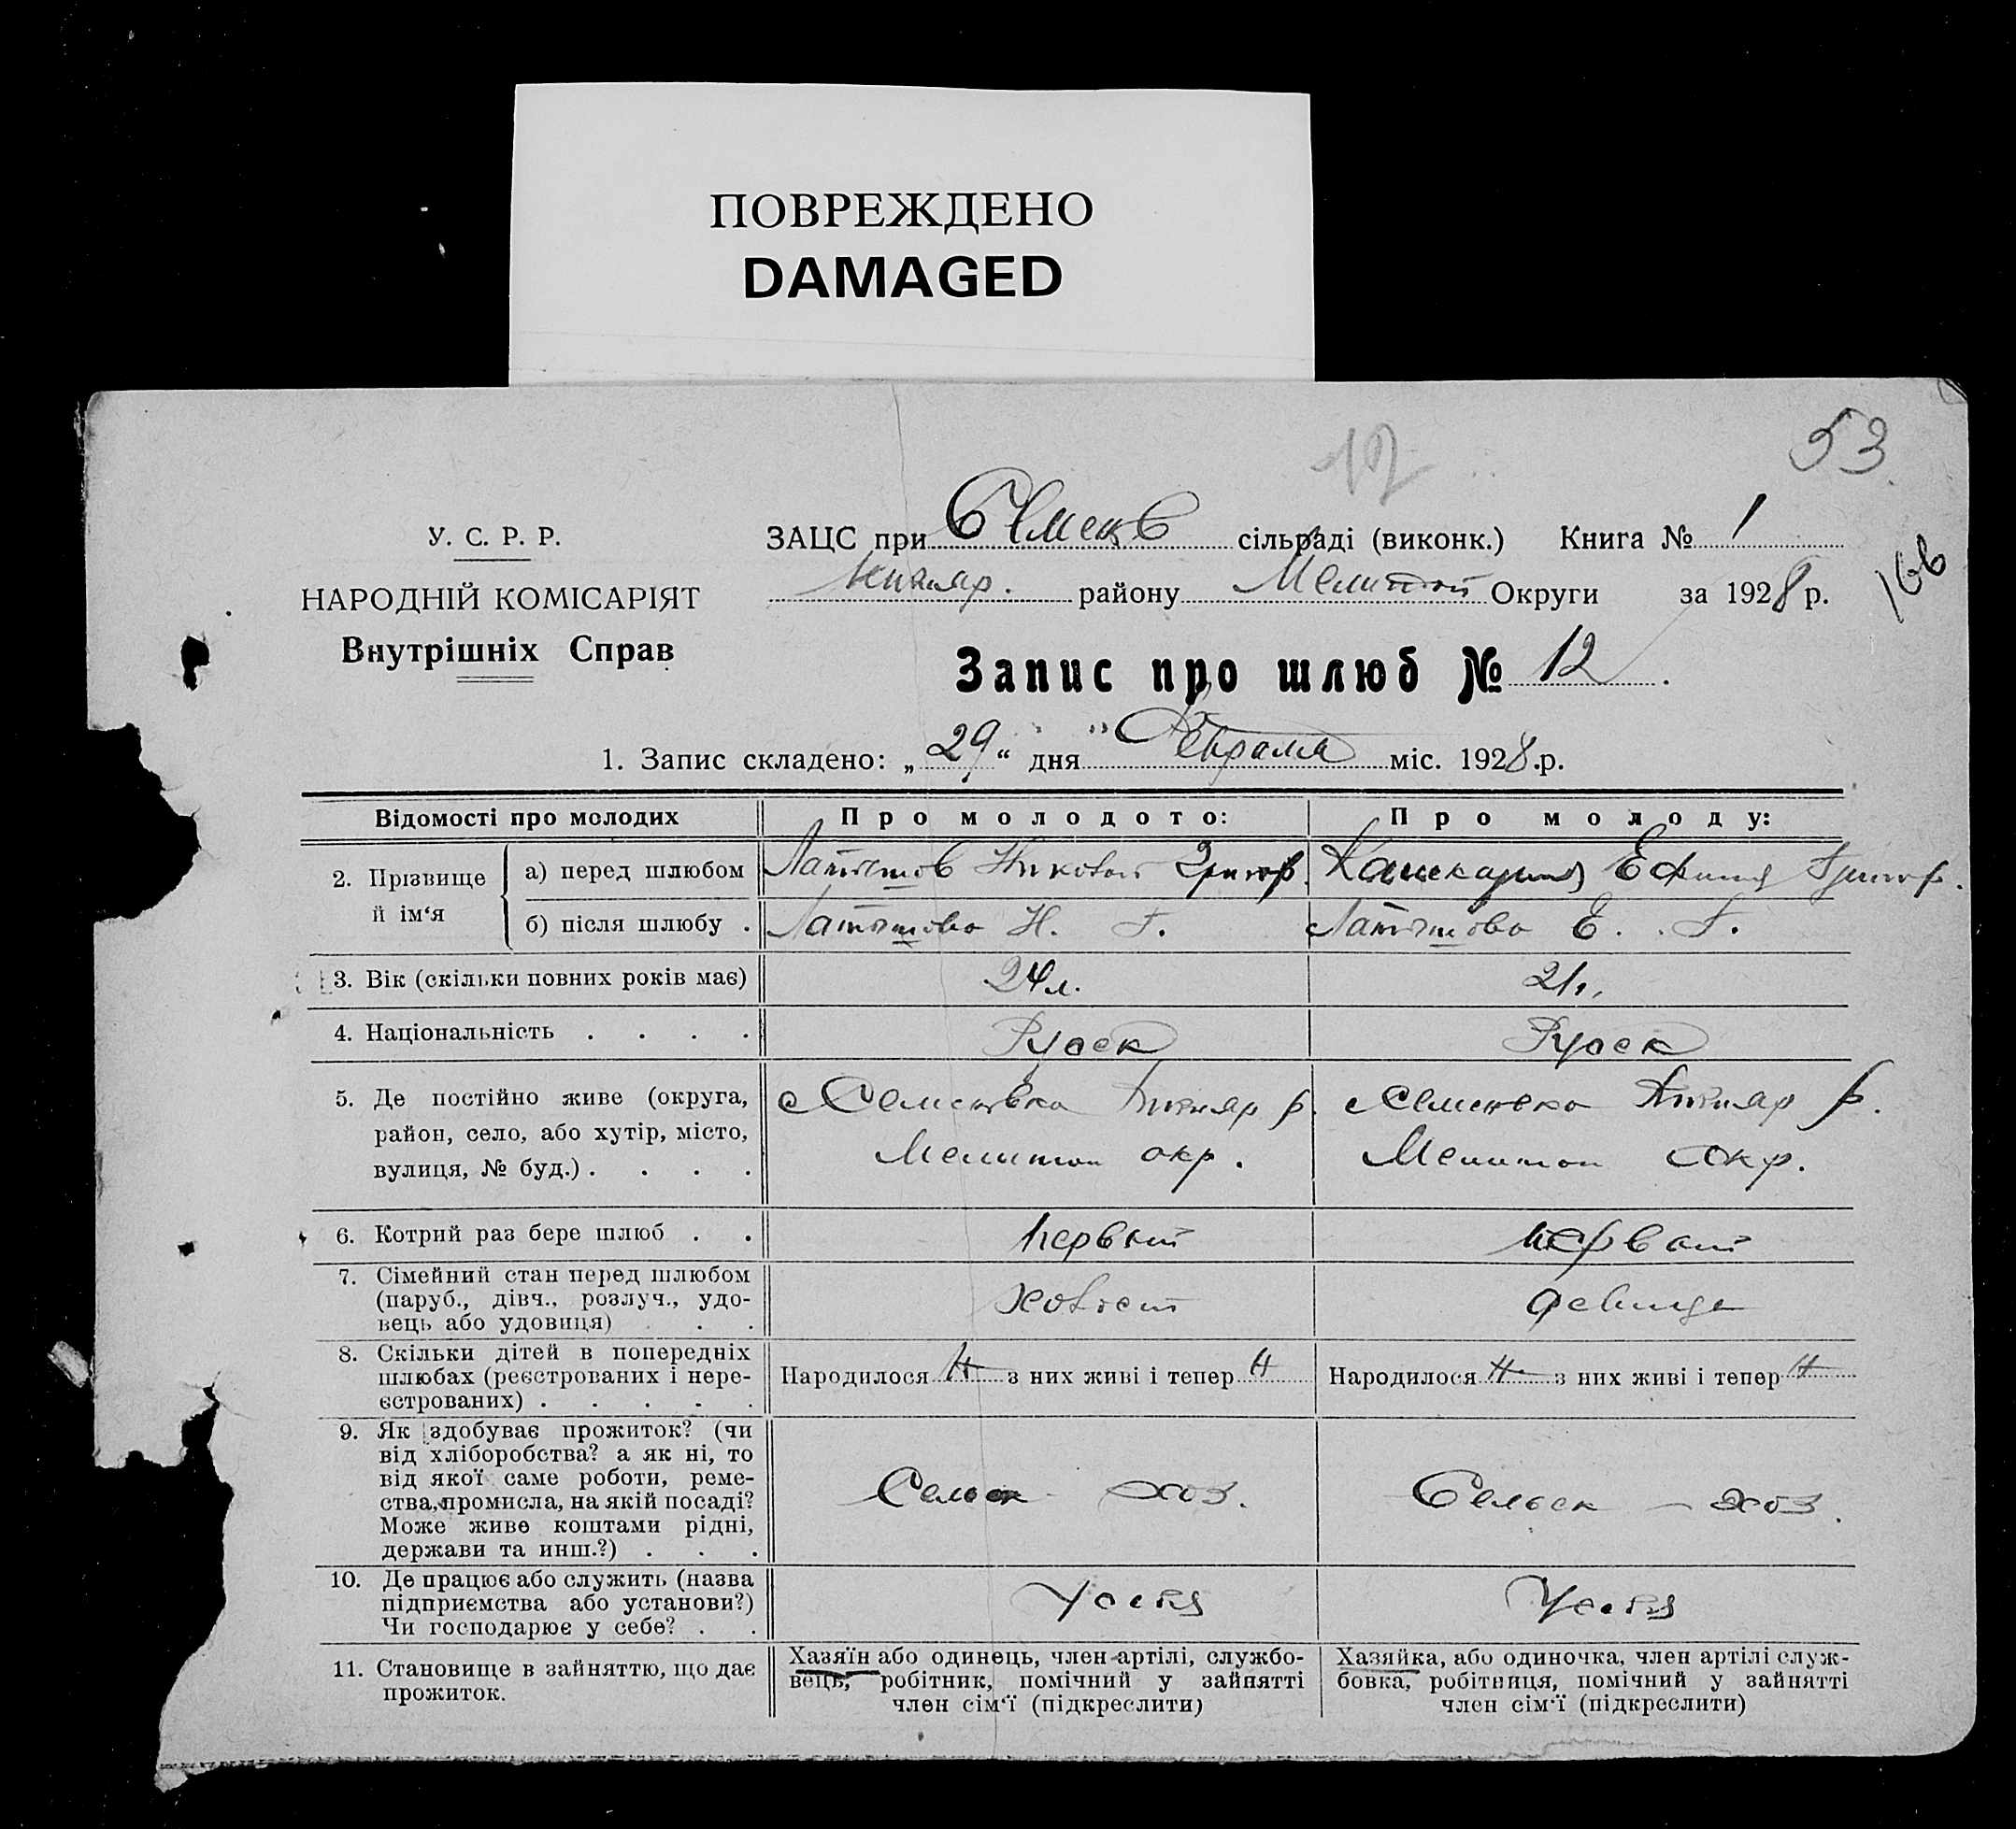 ПОВРЕЖДЕНО
DAMAGED
53
12
У. С. Р. Р.
ЗАЦС при сільраді (виконк.) Книга № 1
166
НАРОДНІЙ КОМІСАРІЯТ
району Мелитоп Округи за 1928 р.
Внутрішніх Справ
Запис про шлюб № 12.
1. Запис складено: „29“ дня Февраля міс. 1928.р.
Відомості про молодих
Про молодого:
Про молоду:
2. Прізвище й ім‘я
а) перед шлюбом
Григор.
Григор.
б) після шлюбу .
Н. Г.
Е. Г.
3. Вік (скільки повних років має)
24 л.
21 л.
4. Національність . . . .
Русск
Русск
5. Де постійно живе (округа,
район, село, або хутір, місто,
вулиця, № буд.) . . . .
с Семеновка р.
Мелитоп окр.
с Семеновка р.
Мелитоп Окр.
6. Котрий раз бере шлюб . .
первый
первый
7. Сімейний стан перед шлюбом
(паруб., дівч., розлуч., удо-
вець або удовиця) . . .
холост
девица
8. Скільки дітей в попередніх
шлюбах (реєстрованих і нере-
єстрованих) . . . . .
Народилося Н з них живі і тепер Н
Народилося Н з них живі і тепер Н
9. Як здобуває прожиток? (чи
від хліборобства? а як ні, то
від якої саме роботи, реме-
ства, промисла, на якій посаді?
Може живе коштами рідні,
держави та инш.?) . . .
Сельск - хоз.
Сельск - хоз.
10. Де працює або служить (назва
підприємства або установи?)
Чи господарює у себе? . .
У себя
У себя
11. Становище в зайняттю, що дає
прожиток.
Хазяїн або одинець, член артілі, службо-
вець, робітник, помічний у зайнятті
член сім‘ї (підкреслити)
Хазяйка, або одиночка, член артілі служ-
бовка, робітниця, помічний у зайнятті
член сім‘ї (підкреслити)